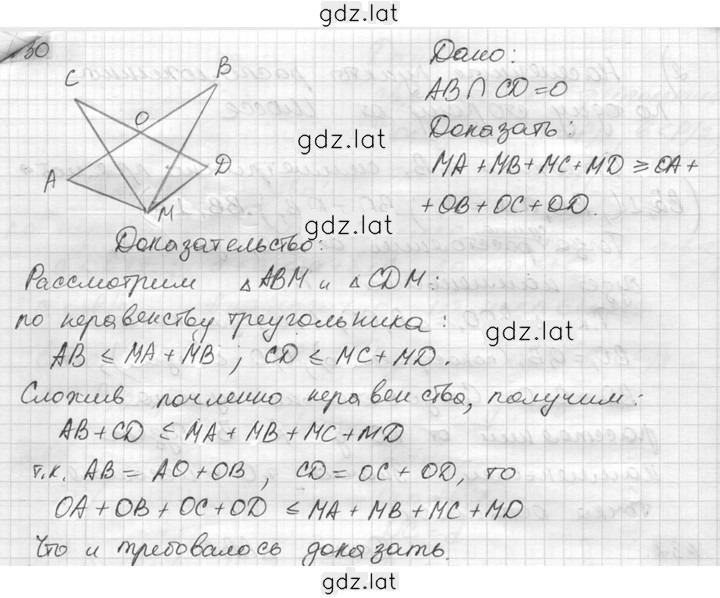 gdz.lat
30
C
B
O
A
D
M
Дано:
AB ∩ CD = O
gdz.lat
Доказать:
MA + MB + MC + MD ≥ OA +
+ OB + OC + OD.
gdz.lat
Доказательство:
Рассмотрим △ ABM и △ CDM:
по неравенству треугольника:
gdz.lat
AB ≤ MA + MB ; CD ≤ MC + MD.
Сложив почленно неравенства, получим:
AB + CD ≤ MA + MB + MC + MD
т.к. AB = AO + OB , CD = OC + OD, то
OA + OB + OC + OD ≤ MA + MB + MC + MD
Что и требовалось доказать.
gdz.lat